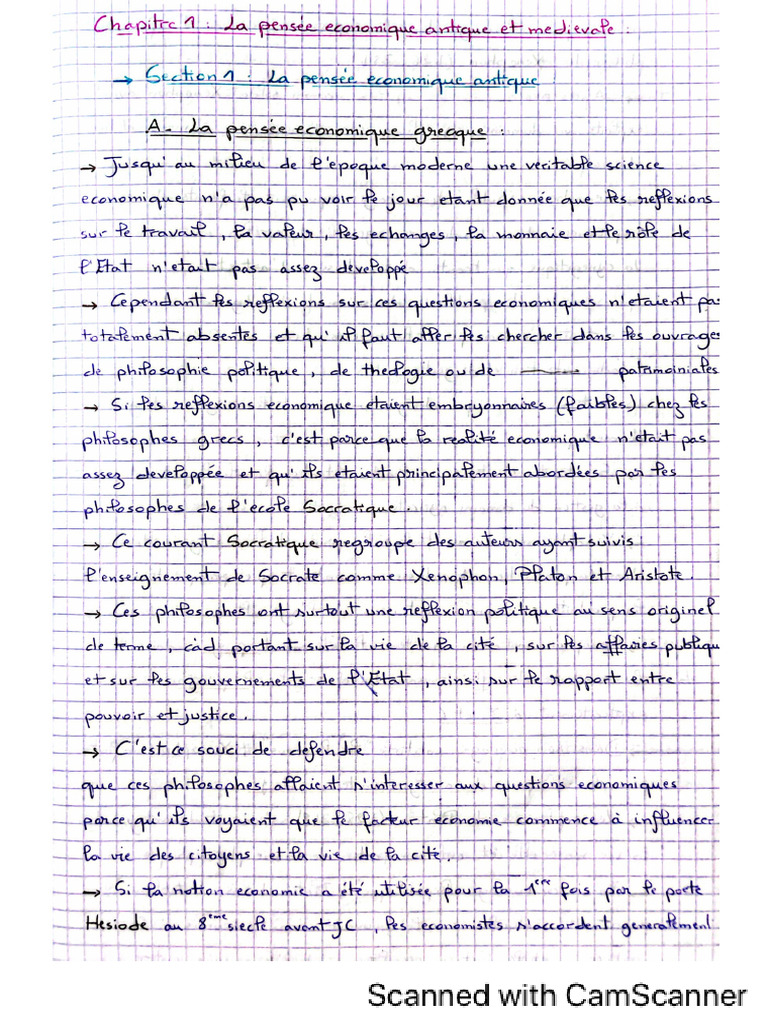 Chapitre 1 : La pensée economique antique et medievale :
→ Section 1 : La pensée economique antique
A- La pensée economique grecque :
→ Jusqu'au milieu de l'epoque moderne une veritable science
economique n'a pas pu voir le jour etant donnée que les reflexions
sur le travail, la valeur, les echanges, la monnaie et le rôle de
l'Etat n'etait pas assez developpé
→ Cependant les reflexions sur ces questions economiques n'etaient pas
totalement absentes et qu'il faut aller les chercher dans les ouvrages
de philosophie politique, de theologie ou de ——— patrimoiniales
→ Si les reflexions economique etaient embryonnaires (faibles) chez les
philosophes grecs, c'est parce que la realité economique n'etait pas
assez developpée et qu'ils etaient principalement abordées par les
philosophes de l'ecole Socratique.
→ Ce courant Socratique regroupe des auteurs ayant suivis
l'enseignement de Socrate comme Xenophon, Platon et Aristote.
→ Ces philosophes ont surtout une reflexion politique au sens originel
de terme, càd portant sur la vie de la cité, sur les affaires publiqu
et sur les gouvernements de l'Etat, ainsi sur le rapport entre
pouvoir et justice.
→ C'est ce souci de defendre
que ces philosophes allaient s'interesser aux questions economiques
parce qu'ils voyaient que le facteur economie commence à influencer
la vie des citoyens et la vie de la cité.
→ Si la notion economie a été utilisée pour la 1ère fois par le poete
Hesiode au 8ème siecle avant JC, les economistes s'accordent generalement
Scanned with CamScanner